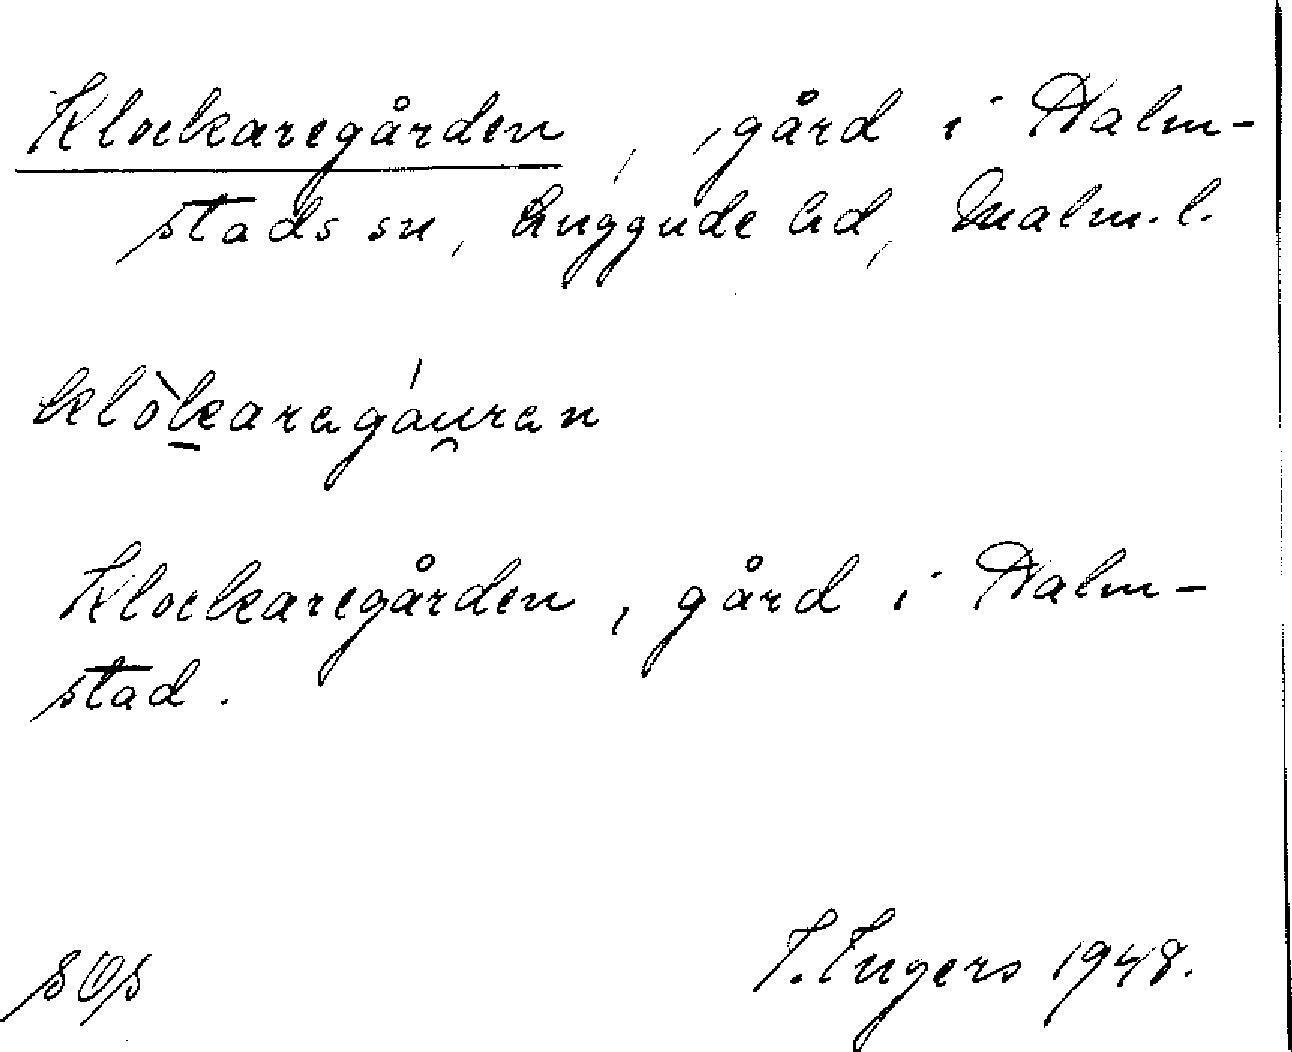 Klockaregården, gård i Halm-
stads sn, Luggude hd, Malm. l.
klòkaragáuran
Klockaregården, gård i Halm-
stad.
I. Ingers 1948.